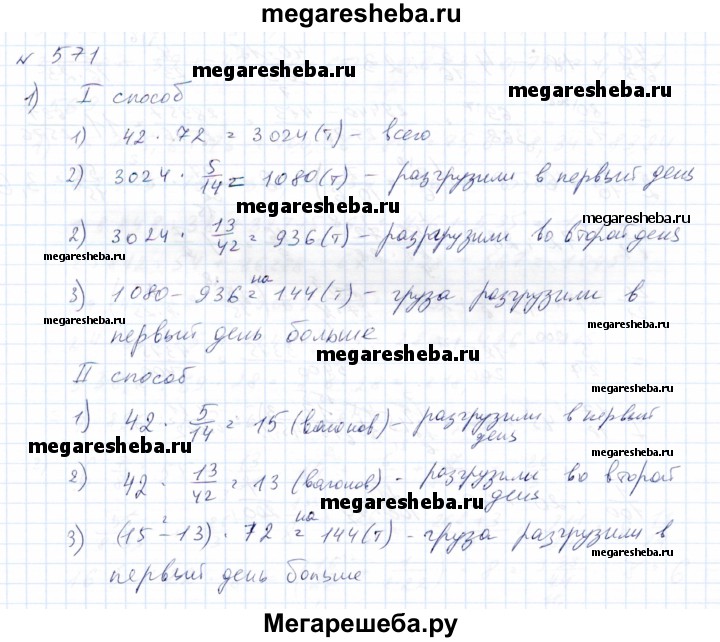 megaresheba.ru
№ 571
megaresheba.ru
megaresheba.ru
1) I способ
1) 42 · 72 = 3024 (т) - всего
2) 3024 · 5/14 = 1080 (т) - разгрузили в первый день
megaresheba.ru
megaresheba.ru
2) 3024 · 13/42 = 936 (т) - разгрузили во второй день
megaresheba.ru
megaresheba.ru
3) 1080 - 936 = на 144 (т) - груза разгрузили в
megaresheba.ru
megaresheba.ru
первый день больше
megaresheba.ru
II способ
megaresheba.ru
1) 42 · 5/14 = 15 (вагонов) - разгрузили в первый
день
megaresheba.ru
megaresheba.ru
2) 42 · 13/42 = 13 (вагонов) - разгрузили во второй
день
megaresheba.ru
3) (15 - 13) · 72 = на 144 (т) - груза разгрузили в
megaresheba.ru
первый день больше
Мегарешеба.ру